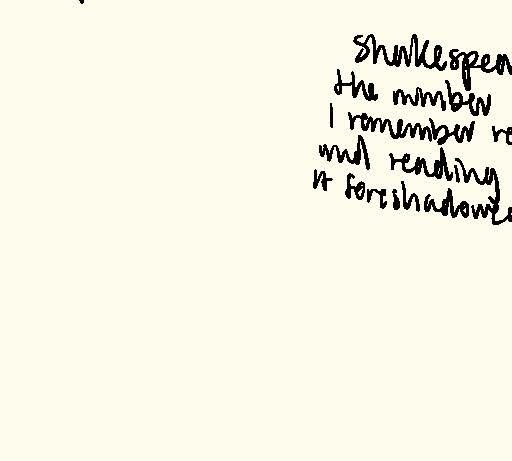 Shakespear
the number
I remember re
and reading
it foreshadowed